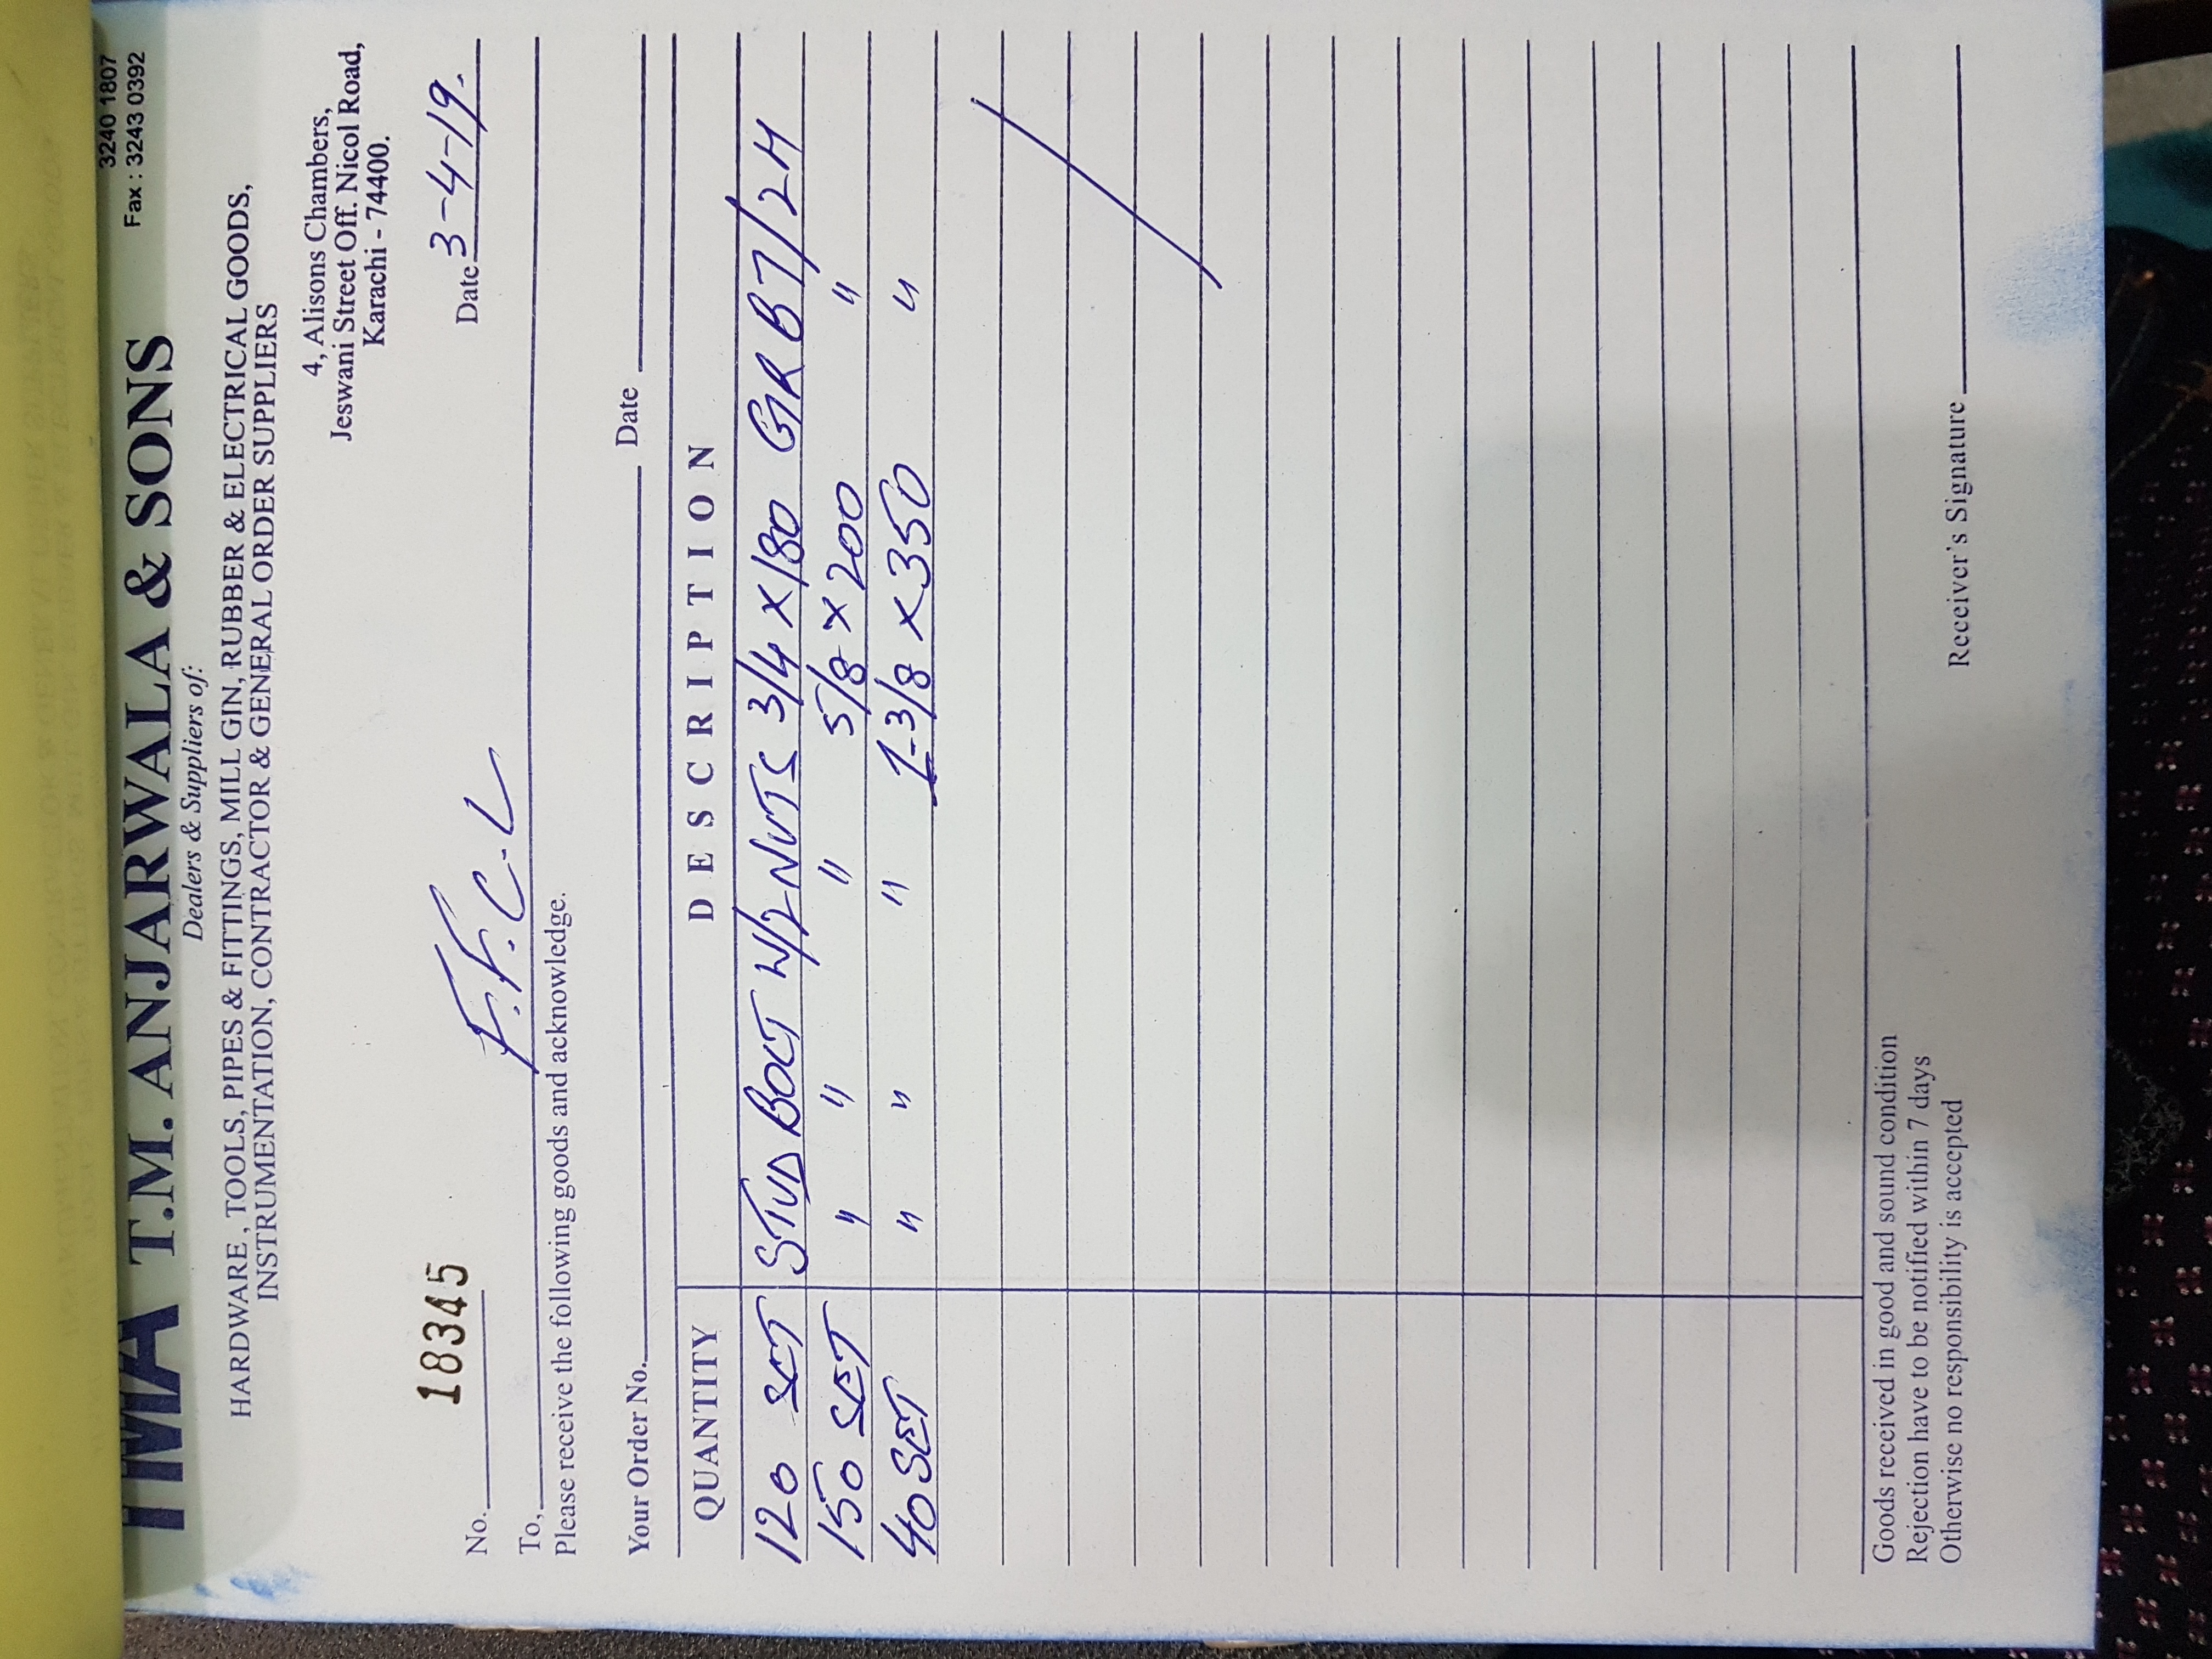 3240 1807
Fax : 3243 0392
TMA T.M. ANJARWALA & SONS
Dealers & Suppliers of:
HARDWARE , TOOLS, PIPES & FITTINGS, MILL GIN, RUBBER & ELECTRICAL GOODS,
INSTRUMENTATION, CONTRACTOR & GENERAL ORDER SUPPLIERS
4, Alisons Chambers,
Jeswani Street Off. Nicol Road,
Karachi - 74400.
No. 18345 Date 3-4-19.
To, F.F.C.L
Please receive the following goods and acknowledge.
Your Order No. Date
QUANTITY DESCRIPTION
120 SET STUD BOLT W/2 NUTS 3/4 X 180 GR B7/2H
150 SET " " " 5/8 X 200 "
40 SET " " " 1-3/8 X 350 "
Goods received in good and sound condition
Rejection have to be notified within 7 days
Otherwise no responsibility is accepted
Receiver's Signature